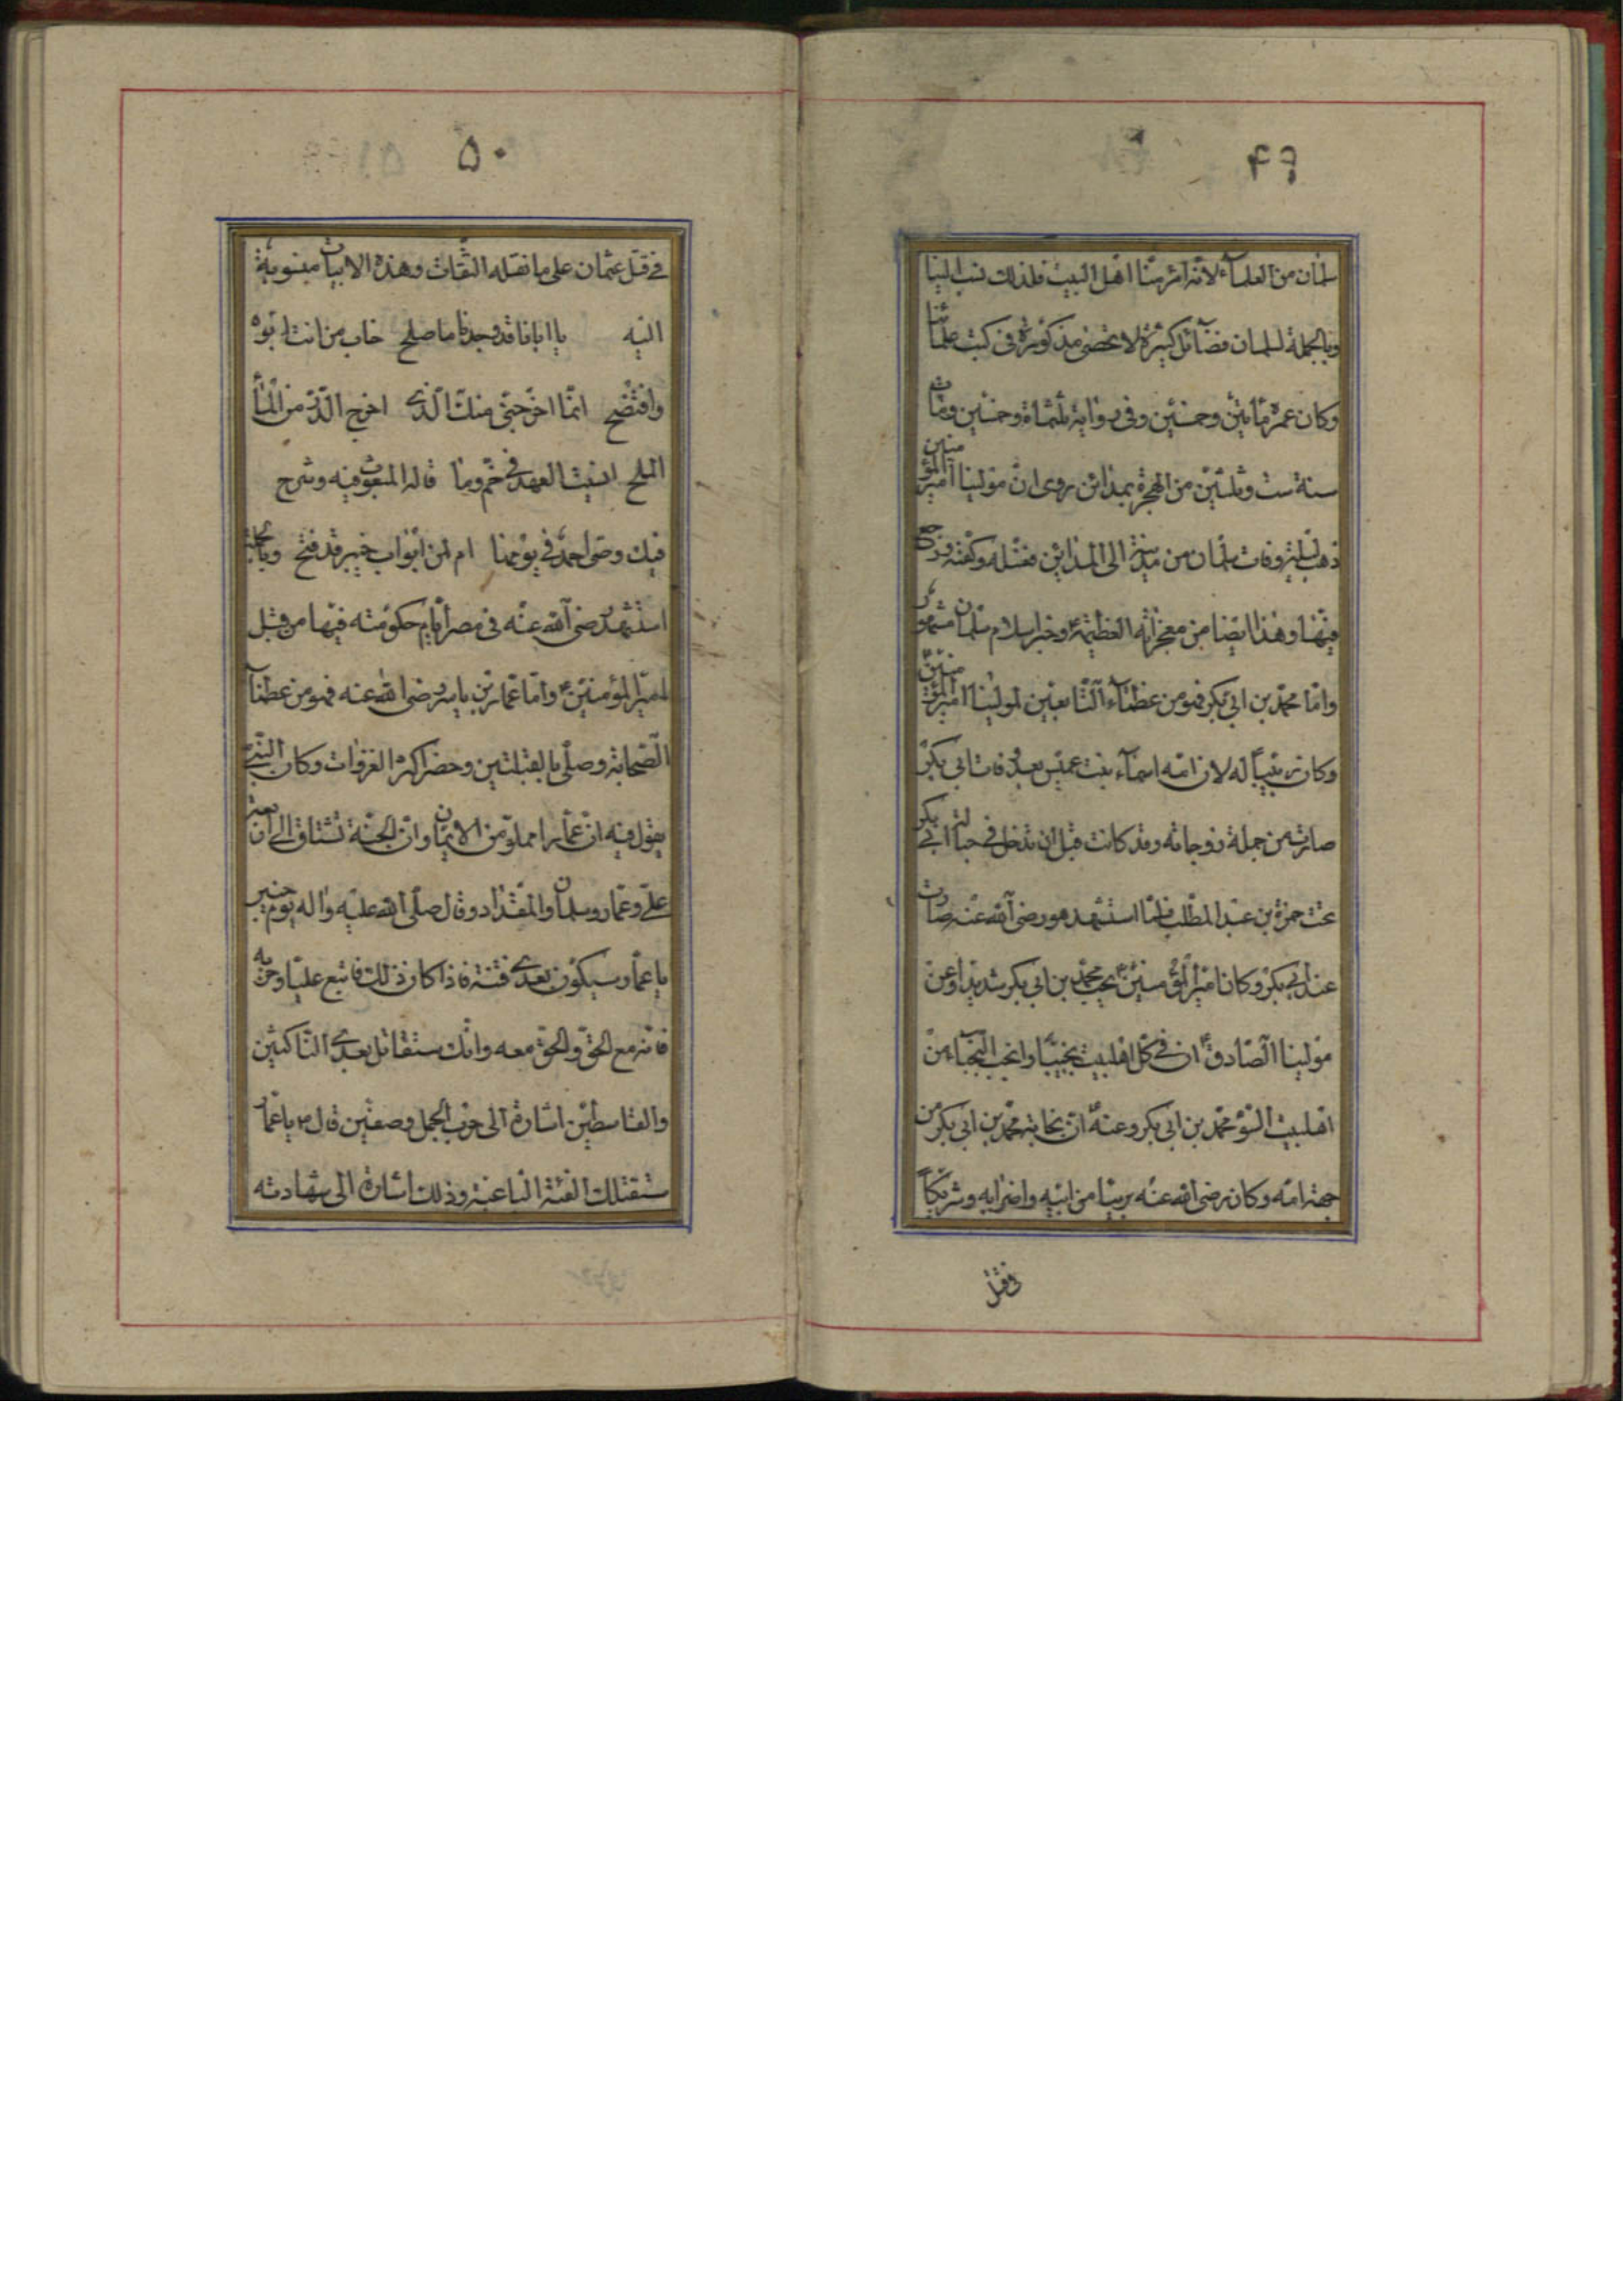 ۴۹
سلمان من العلمآء لانه امرء منّا اهل البيت فلذلك نسب الينا
وبالجملة لسلمان فضآئل كثيرة لا تحصى مذكورة فى كتب علمائنا
وكان عمره مأتين وخمسين وفى رواية ثلثمأة وخمسين ومات
سنة ست وثلثين من الهجرة بمدائن روى ان مولينا امير المؤمنين
ذهب ليلة وفات سلمان من مدينة الى المدائن فغسله وكفنه ورجع
فيها وهذا ايضا من معجزاته العظيمة وخبر اسلام سلمان مشهور
وامّا محمّد بن ابى بكر فهو من عظمآء التّابعين لمولينا امير المؤمنين
وكان ربيباً له لان امّه اسمآء بنت عميس بعد وفات ابى بكر
صارت من جملة زوجاته وقد كانت قبل ان تدخل فى حبالة ابى بكر
تحت حمزة بن عبد المطّلب فلمّا استشهد هو رضى الله عنه صارت
عند ابى بكر وكان امير المؤمنين يحب محمّد بن ابى بكر شديداً وعن
مولينا الصّادق ان فى كلّ اهلبيت نجيباً وانجب النّجباء من
اهلبيت السّوء محمّد بن ابى بكر وعنه انّ نجابة محمّد بن ابى بكر من
جهة امّه وكان رضى الله عنه بريئا من ابيه واضرابه وشريكاً
فى قتل
۵۰
فى قتل عثمان على ما نقله الثقات وهذه الابيات منسوبة
اليه يا ابانا قد وجدنا ما صلح خاب من انت ابوه
وافتضح انّما اخرجنى منك الّذى اخرج الدّرّ من المآء
الملح انسيت العهد فى خمّ وما قاله المبعوث فيه وشرح
فيك وصّى احمد فى يومنا ام لمن ابواب خيبر قد فتح وبالجملة
استشهد رضى الله عنه فى مصر ايّام حكومته فيها من قبل
امير المؤمنين وامّا عمّار بن ياسر رضى الله عنه فهو من عظمآء
الصّحابة وصلّى بالقبلتين وحضر اكثر الغزوات وكان النّبى
يقول فيه انّ عمّارا مملوّ من الايمان وانّ الجنّة تشتاق الى اربعة
علىّ وعمّار وسلمان والمقداد وقال صلّى الله عليه واله يوم خيبر
يا عمّار سيكون بعدى فتنة فاذا كان ذلك فاتبع عليّا وحزبه
فانّه مع الحقّ والحقّ معه وانّك ستقاتل بعدى النّاكثين
والقاسطين اشارة الى حرب الجمل وصفين قال يا عمّار
ستقتلك الفئة الباغية وذلك اشارة الى شهادته